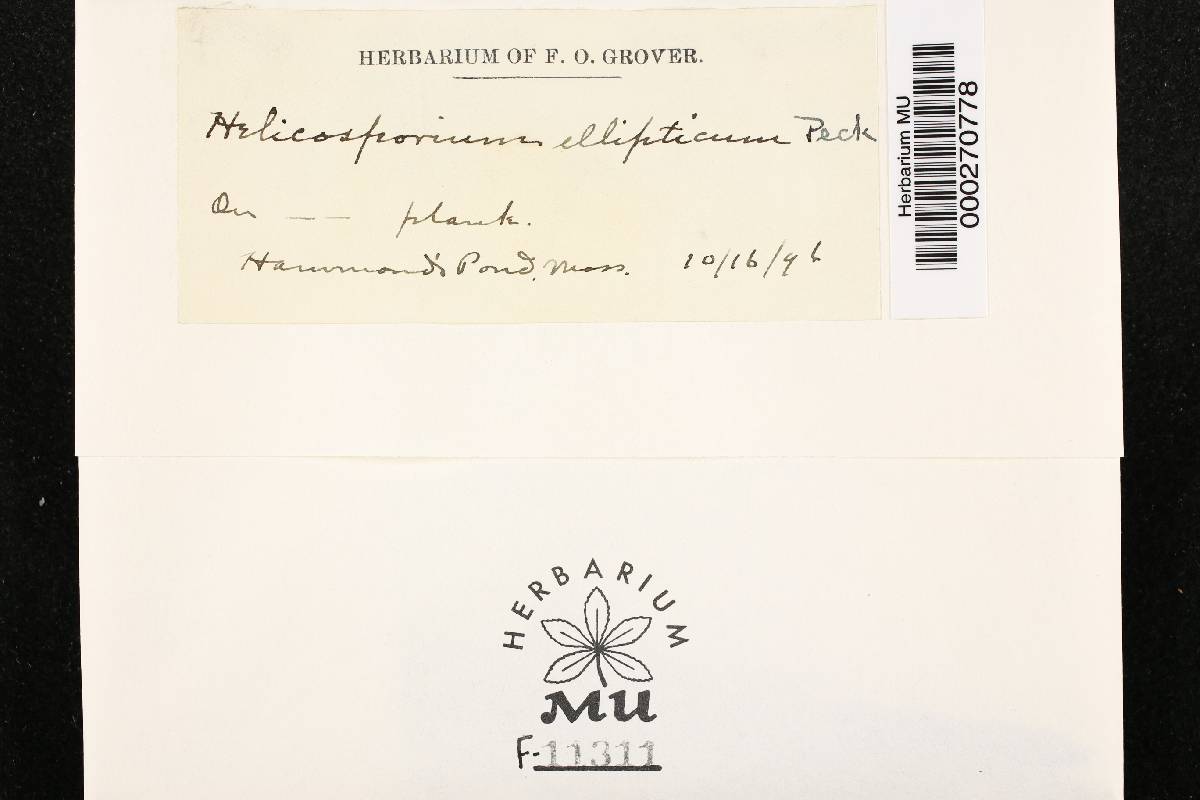 HERBARIUM OF F. O. GROVER.
Helicosporium ellipticum Peck
On —— plank.
Hammond's Pond, Mass. 10/16/96
Herbarium MU
000270778
HERBARIUM
MU
F-11311